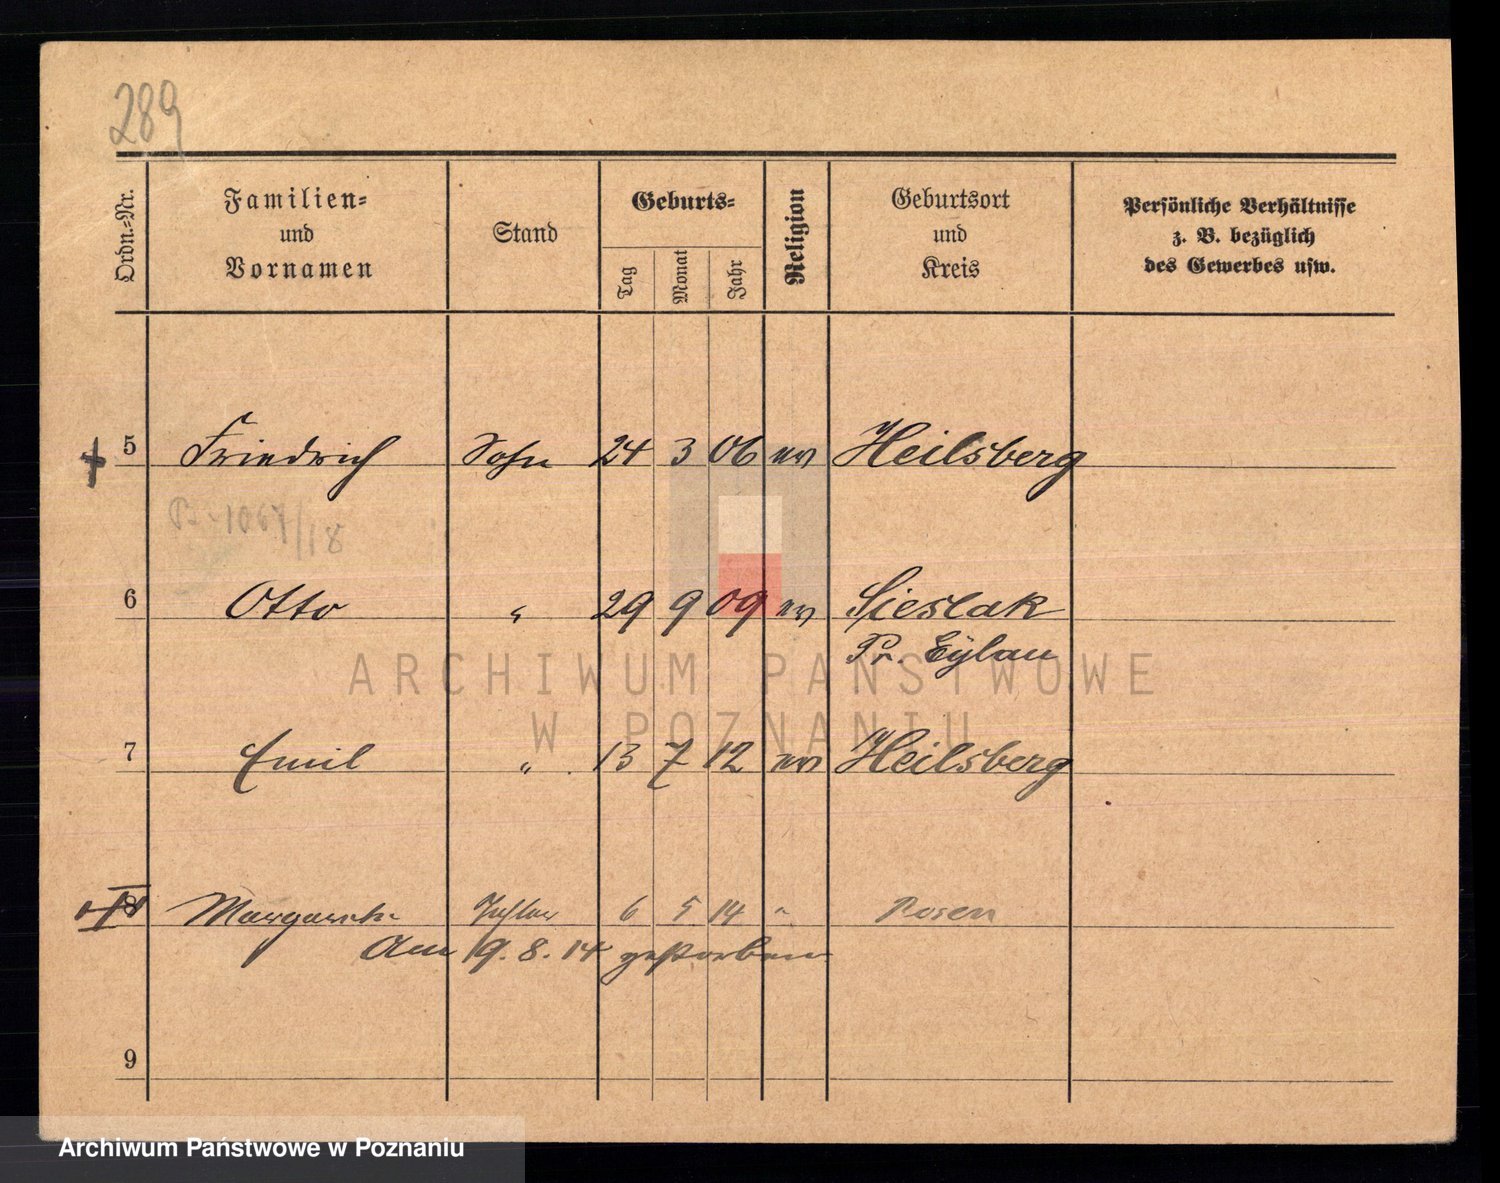 289
Ordn.-Nr.
Familien- und Vornamen
Stand
Geburts-
Tag
Monat
Jahr
Religion
Geburtsort und Kreis
Persönliche Verhältnisse z. B. bezüglich des Gewerbes usw.
5 Friedrich Sohn 24 3 06 ev Heilsberg
1067/18
6 Otto " 29 9 09 ev Sieslak
Pr. Eylau
7 Emil " 13 7 12 ev Heilsberg
8 Margarete Tochter 6 5 14 " Posen
Am 9. 8. 14 gestorben
9
ARCHIWUM PAŃSTWOWE
W POZNANIU
Archiwum Państwowe w Poznaniu